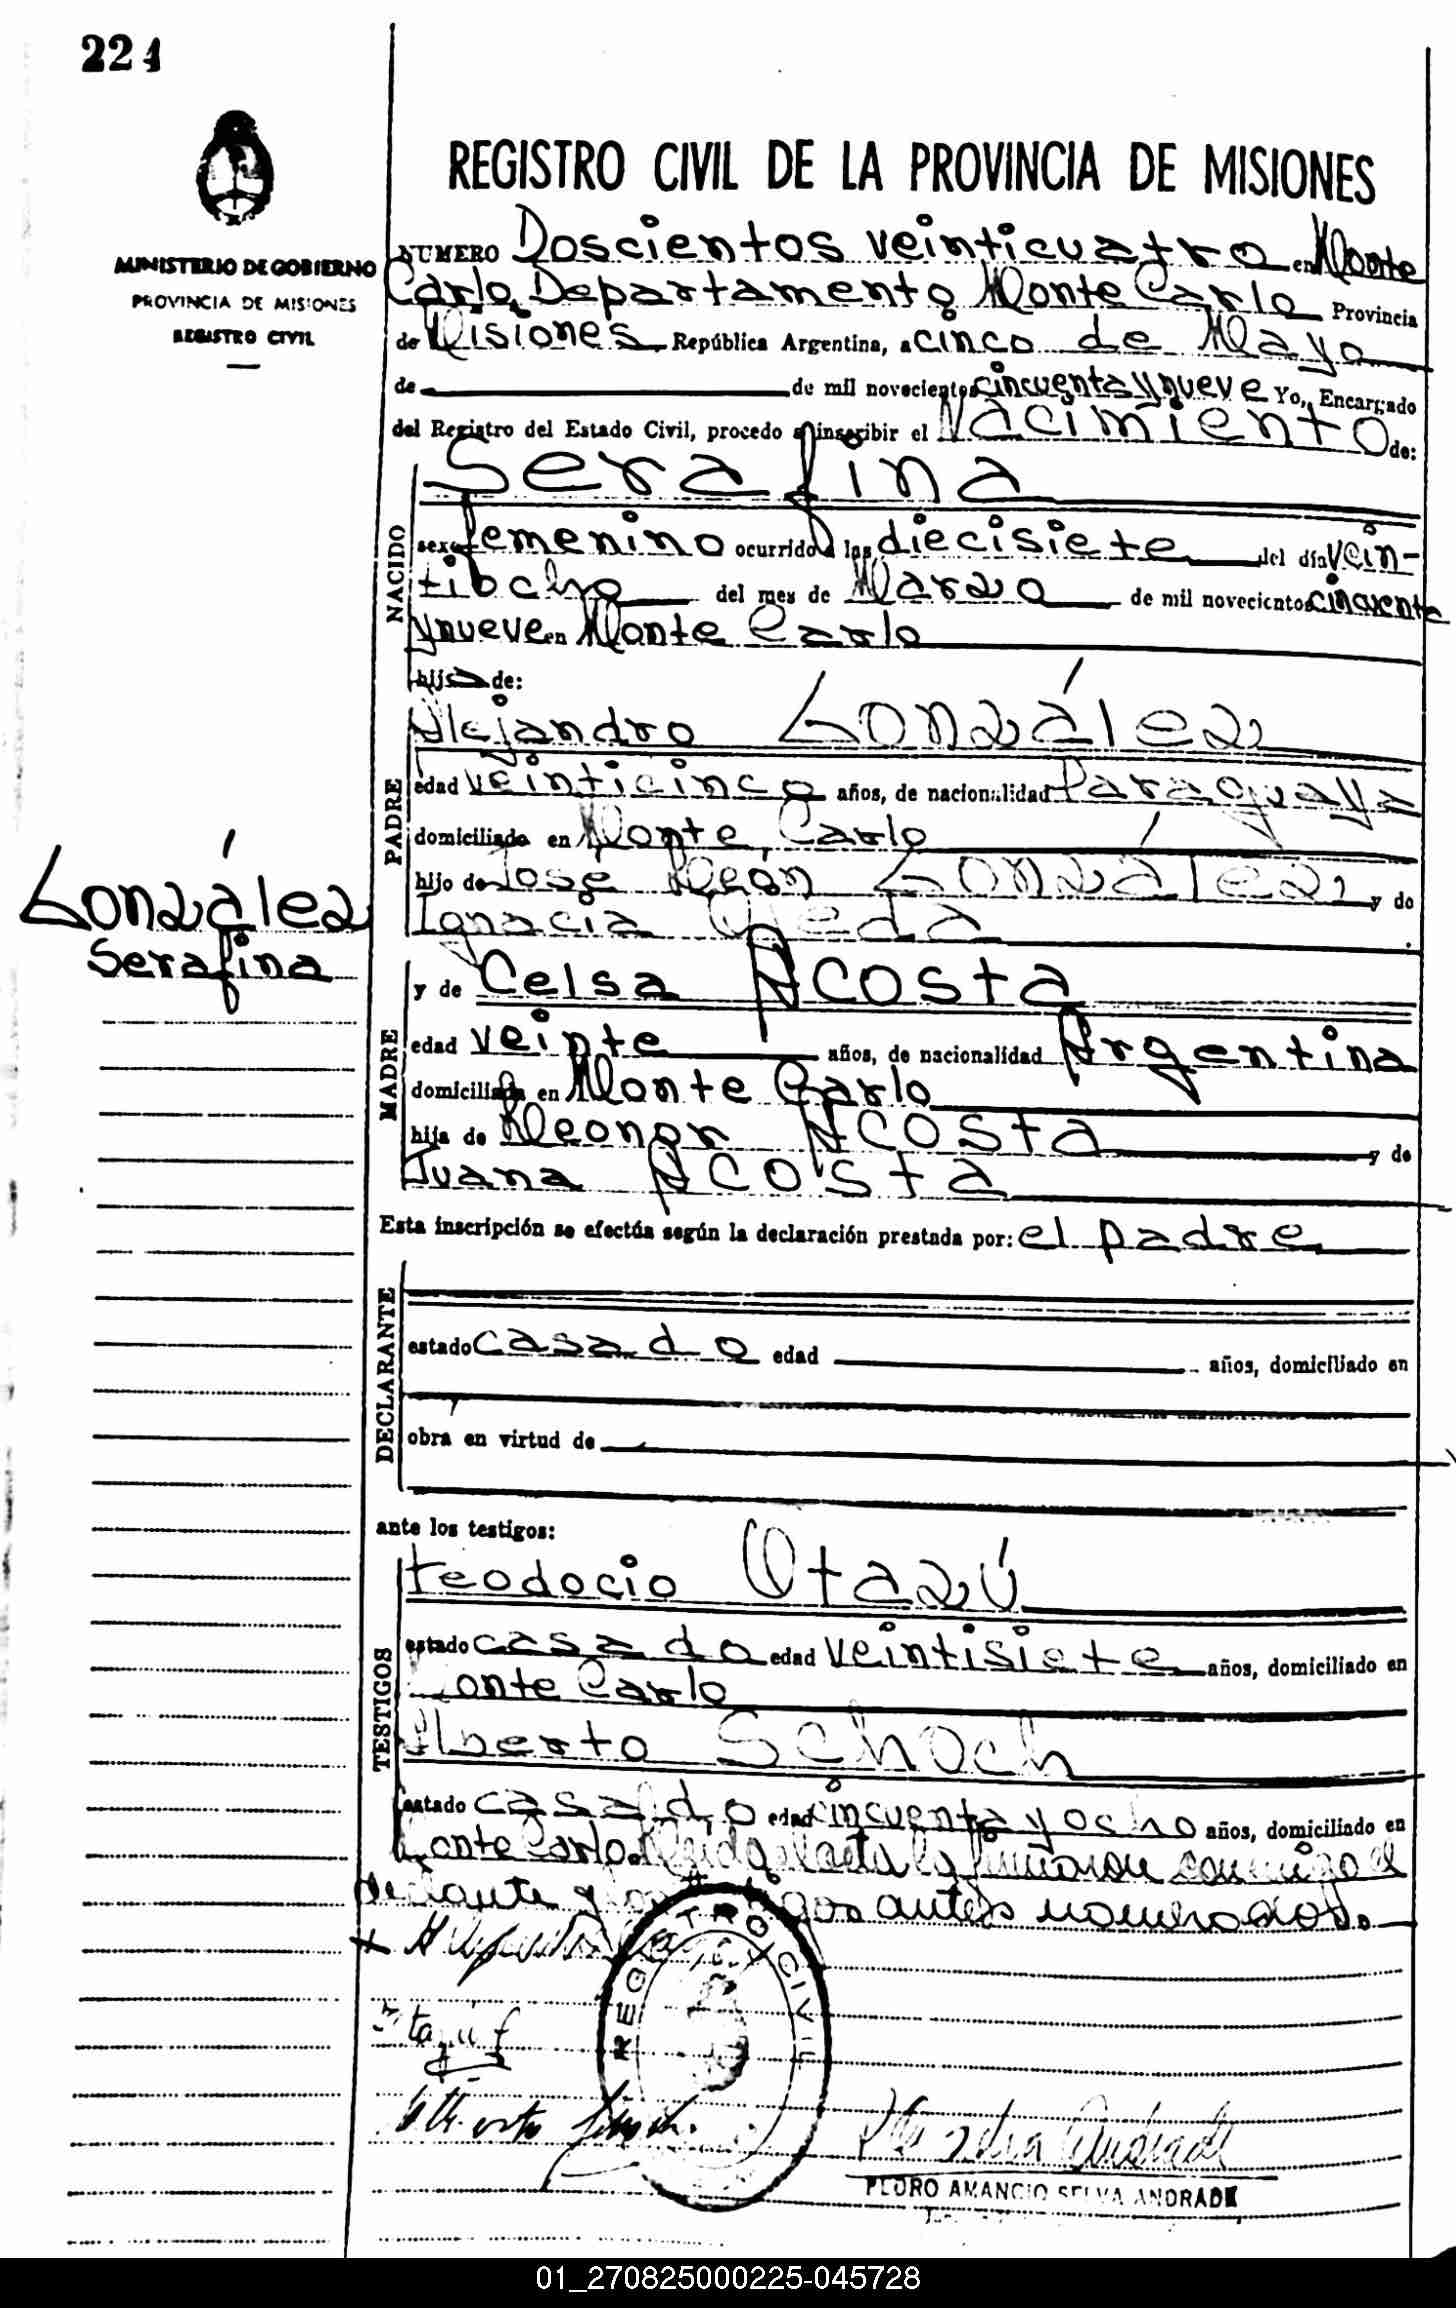 224
MINISTERIO DE GOBIERNO
PROVINCIA DE MISIONES
REGISTRO CIVIL
REGISTRO CIVIL DE LA PROVINCIA DE MISIONES
NUMERO Doscientos veinticuatro en Monte
Carlo, Departamento Monte Carlo Provincia
de Misiones, República Argentina, a cinco de Mayo
de de mil novecientos cincuenta y nueve Yo, Encargado
del Registro del Estado Civil, procedo a inscribir el Nacimiento de:
NACIDO
Serafina
sexo femenino ocurrido a las diecisiete del día vein-
tiocho del mes de Marzo de mil novecientos cincuenta
y nueve en Monte Carlo
hija de:
PADRE
Alejandro González
edad veinticinco años, de nacionalidad Paraguaya
domiciliado en Monte Carlo
hijo de José León González, y de
Ignacia Ojeda
González
Serafina
MADRE
y de Celsa Acosta
edad veinte años, de nacionalidad Argentina
domiciliada en Monte Carlo
hija de Leonor Acosta y de
Juana Acosta
Esta inscripción se efectúa según la declaración prestada por: el padre
DECLARANTE
estado casado edad años, domiciliado en
obra en virtud de
ante los testigos:
TESTIGOS
Teodocio Otazú
estado casado edad veintisiete años, domiciliado en
Monte Carlo
Alberto Schoch
estado casado edad cincuenta y ocho años, domiciliado en
Monte Carlo. Leída el acta la firmaron conmigo el
declarante y los testigos antes nombrados.
REGISTRO CIVIL
Otazú
Alberto Schoch
PEDRO AMANCIO SELVA ANDRADE
01_270825000225-045728